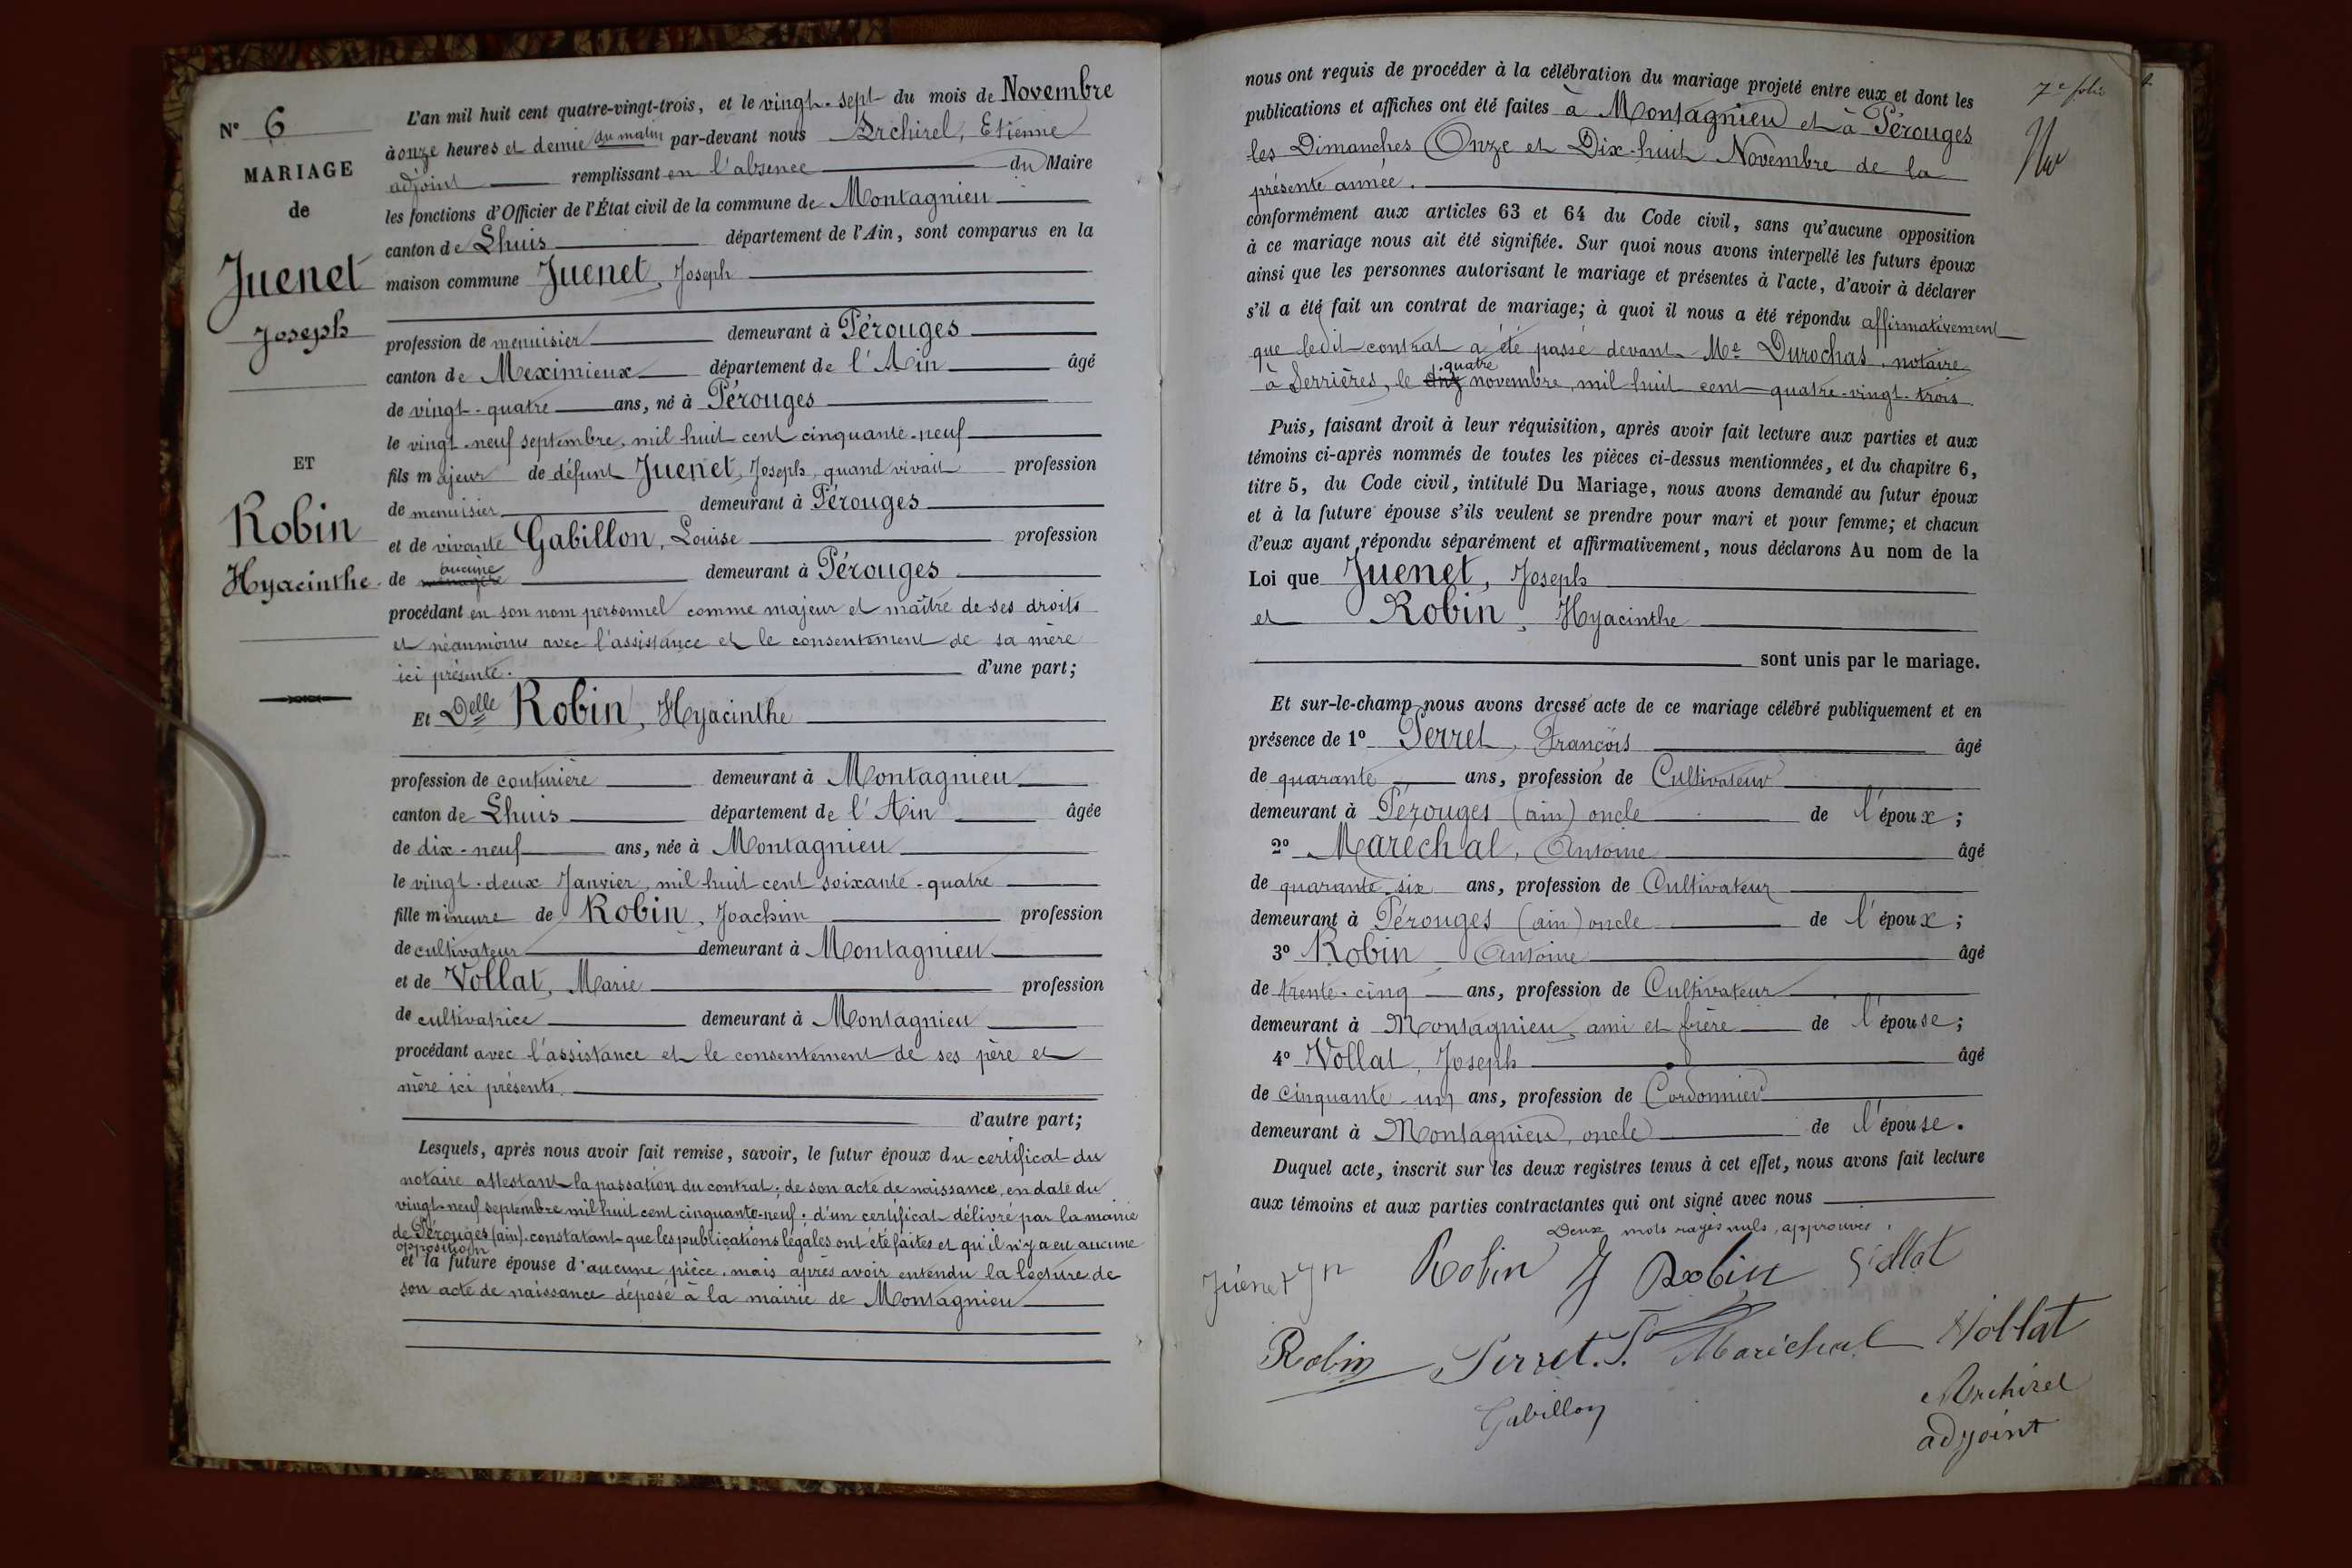 N° 6
MARIAGE
de
Juenet
Joseph
ET
Robin
Hyacinthe
L'an mil huit cent quatre-vingt-trois, et le vingt-sept du mois de Novembre
à onze heures et demie du matin par-devant nous Archirel, Etienne
adjoint remplissant en l'absence du Maire
les fonctions d'Officier de l'État civil de la commune de Montagnieu
canton de Lhuis département de l'Ain, sont comparus en la
maison commune Juenet, Joseph
profession de menuisier demeurant à Pérouges
canton de Meximieux département de l'Ain âgé
de vingt-quatre ans, né à Pérouges
le vingt-neuf septembre, mil huit cent cinquante-neuf
fils majeur de défunt Juenet, Joseph, quand vivait profession
de menuisier demeurant à Pérouges
et de vivante Gabillon, Louise profession
de ménagère aucune demeurant à Pérouges
procédant en son nom personnel comme majeur et maître de ses droits
et néanmoins avec l'assistance et le consentement de sa mère
ici présente. d'une part;
Et Delle Robin, Hyacinthe
profession de couturière demeurant à Montagnieu
canton de Lhuis département de l'Ain âgée
de dix-neuf ans, née à Montagnieu
le vingt-deux Janvier, mil huit cent soixante-quatre
fille mineure de Robin, Joachim profession
de cultivateur demeurant à Montagnieu
et de Vollat, Marie profession
de cultivatrice demeurant à Montagnieu
procédant avec l'assistance et le consentement de ses père et
mère ici présents.
d'autre part;
Lesquels, après nous avoir fait remise, savoir, le futur époux du certificat du
notaire attestant la passation du contrat; de son acte de naissance, en date du
vingt-neuf septembre mil huit cent cinquante-neuf; d'un certificat délivré par la mairie
de Pérouges (ain) constatant que les publications légales ont été faites et qu'il n'y a eu aucune
opposition
et la future épouse d'aucune pièce, mais après avoir entendu la lecture de
son acte de naissance déposé à la mairie de Montagnieu
7e folio
nous ont requis de procéder à la célébration du mariage projeté entre eux et dont les
publications et affiches ont été faites à Montagnieu et à Pérouges
les Dimanches Onze et Dix-huit Novembre de la
présente année.
conformément aux articles 63 et 64 du Code civil, sans qu'aucune opposition
à ce mariage nous ait été signifiée. Sur quoi nous avons interpellé les futurs époux
ainsi que les personnes autorisant le mariage et présentes à l'acte, d'avoir à déclarer
s'il a été fait un contrat de mariage; à quoi il nous a été répondu affirmativement
que ledit contrat a été passé devant Me Durochas, notaire
à Serrières, le quatre novembre, mil huit cent quatre-vingt-trois
Puis, faisant droit à leur réquisition, après avoir fait lecture aux parties et aux
témoins ci-après nommés de toutes les pièces ci-dessus mentionnées, et du chapitre 6,
titre 5, du Code civil, intitulé Du Mariage, nous avons demandé au futur époux
et à la future épouse s'ils veulent se prendre pour mari et pour femme; et chacun
d'eux ayant répondu séparément et affirmativement, nous déclarons Au nom de la
Loi que Juenet, Joseph
et Robin, Hyacinthe
sont unis par le mariage.
Et sur-le-champ nous avons dressé acte de ce mariage célébré publiquement et en
présence de 1° Perret, François âgé
de quarante ans, profession de Cultivateur
demeurant à Pérouges (ain) oncle de l'époux;
2° Maréchal, Antoine âgé
de quarante-six ans, profession de Cultivateur
demeurant à Pérouges (ain) oncle de l'époux;
3° Robin, Antoine âgé
de trente-cinq ans, profession de Cultivateur
demeurant à Montagnieu, ami et frère de l'épouse;
4° Vollat, Joseph âgé
de cinquante-un ans, profession de Cordonnier
demeurant à Montagnieu, oncle de l'épouse.
Duquel acte, inscrit sur les deux registres tenus à cet effet, nous avons fait lecture
aux témoins et aux parties contractantes qui ont signé avec nous
Deux mots rayés nuls, approuvés.
Juenet Jh Robin J Robin
Robin Perret. F. Maréchal Vollat
Gabillon
Archirel
adjoint